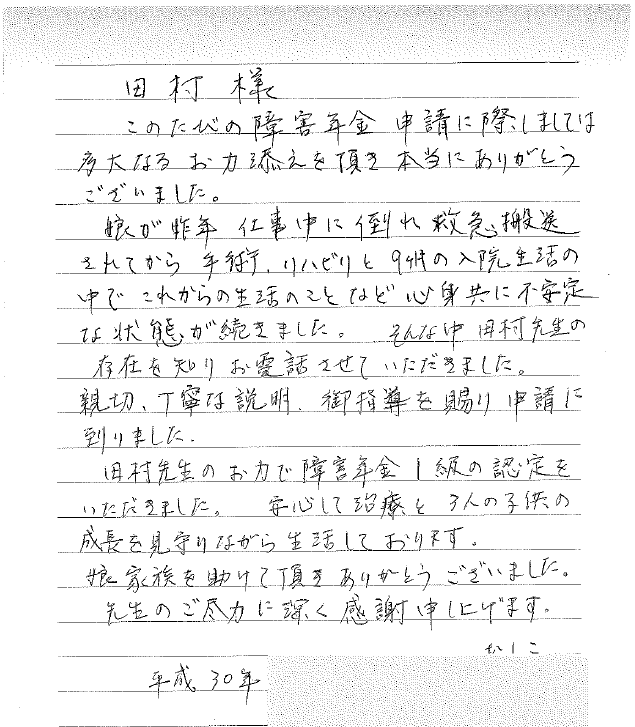 田村様
このたびの障害年金 申請に際しましては
多大なるお力添えを頂き本当にありがとう
ございました。
娘が昨年 仕事中に倒れ救急搬送
されてから 手術、リハビリと 9ヶ月の入院生活の
中で これからの生活のことなど 心身共に不安定
な状態が続きました。 そんな中 田村先生の
存在を知りお電話させていただきました。
親切、丁寧な説明、御指導を賜り申請に
到りました。
田村先生のお力で障害年金1級の認定を
いただきました。 安心して治療と 3人の子供の
成長を見守りながら生活しております。
娘家族を助けて頂きありがとうございました。
先生のご尽力に深く感謝申し上げます。
かしこ
平成30年